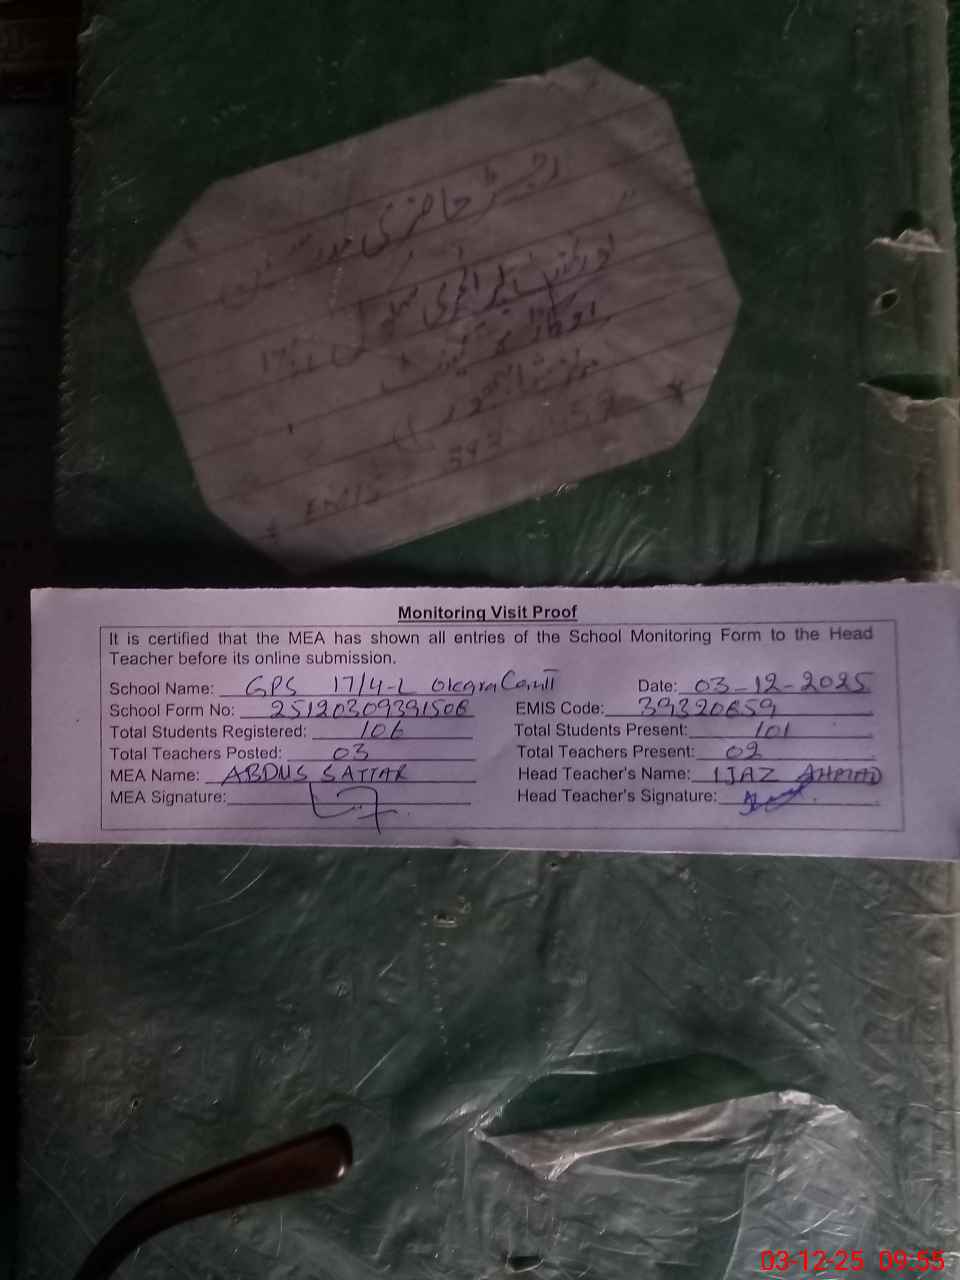 رجسٹر حاضری مدرسین
گورنمنٹ پرائمری سکول
اوکاڑہ کینٹ
EMIS
Monitoring Visit Proof
It is certified that the MEA has shown all entries of the School Monitoring Form to the Head
Teacher before its online submission.
School Name: GPS 17/4-L Okara Cantt Date: 03-12-2025
School Form No: 25120309391506 EMIS Code: 39320659
Total Students Registered: 106 Total Students Present: 101
Total Teachers Posted: 03 Total Teachers Present: 02
MEA Name: ABDUS SATTAR Head Teacher's Name: IJAZ AHMAD
MEA Signature: Head Teacher's Signature:
03-12-25 09:55